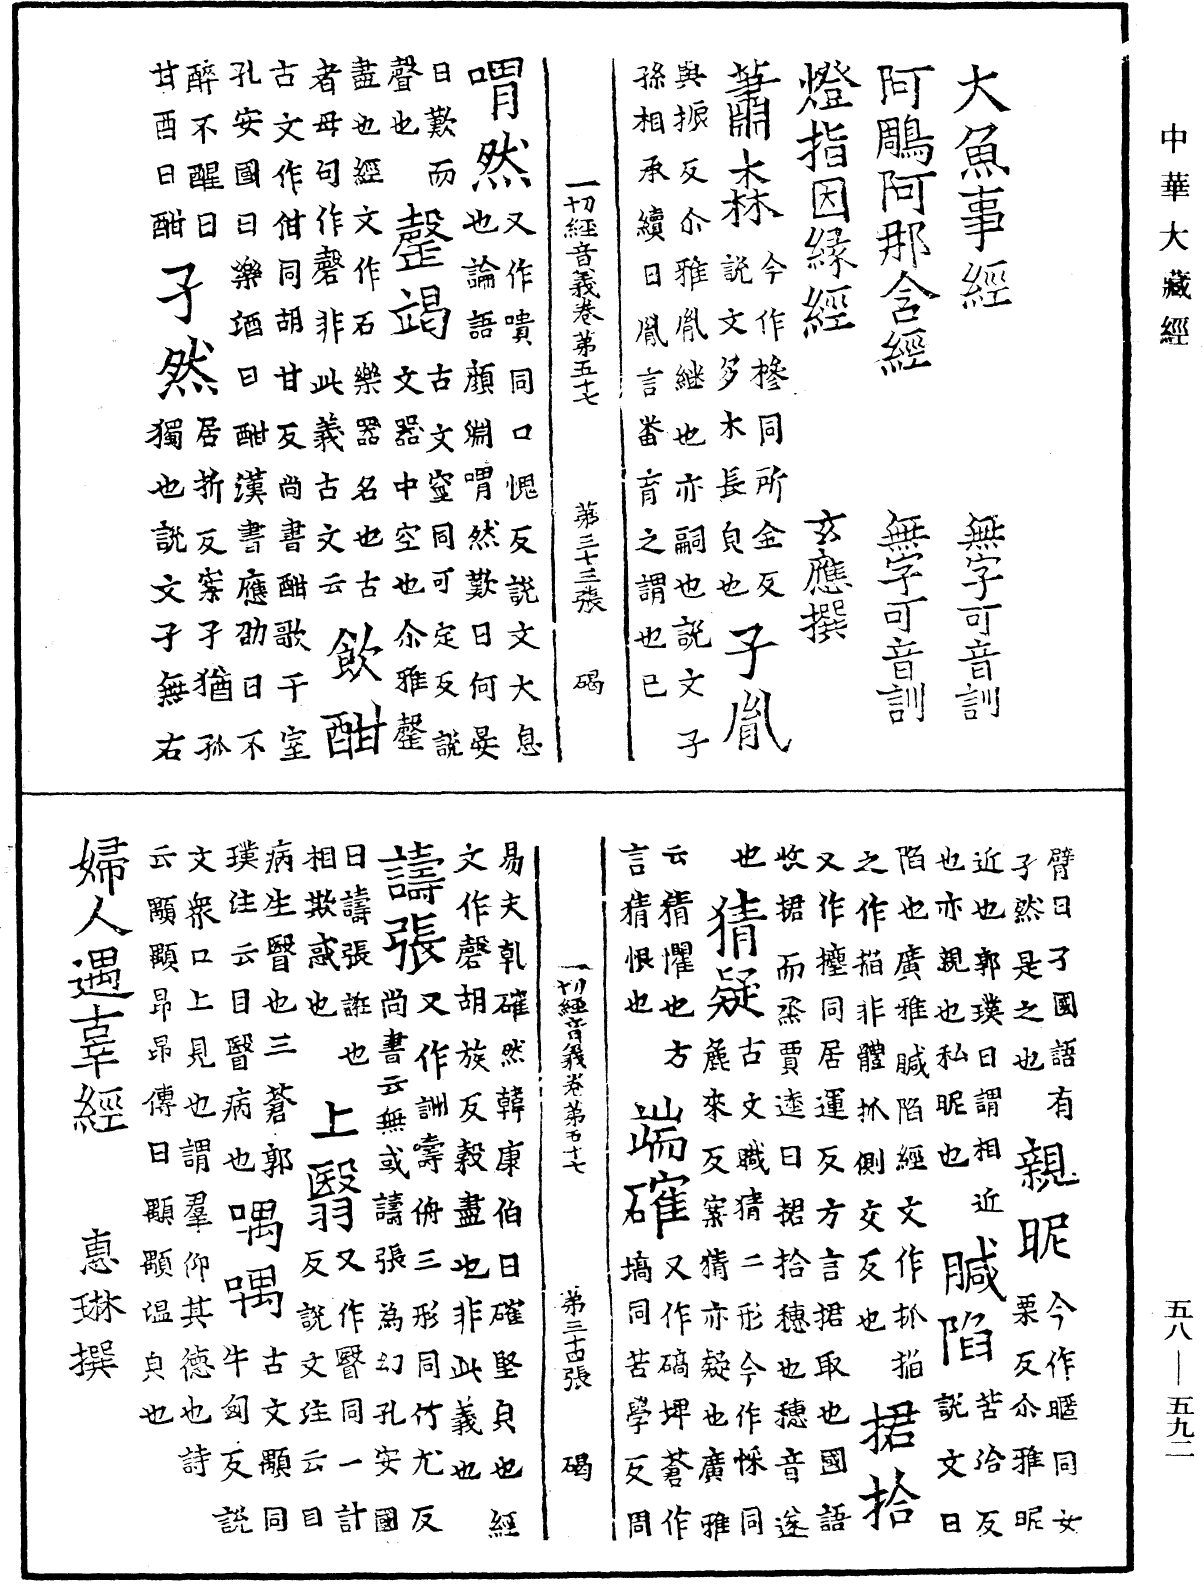 中華大藏經
大魚事經 無字可音訓
阿鵰阿那含經 無字可音訓
燈指因緣經 玄應撰
蕭森 今作椮同所金反
說文多木長皃也 子胤
與振反尒雅胤継也亦嗣也說文子
孫相承續曰胤言蕃育之謂也已
一切經音義卷第五十七 第三十三張 碣
喟然 又作嘳同口愧反說文大息
也論語顏淵喟然歎曰何晏
曰歎而
聲也 罄竭 古文窒同可定反說
文器中空也尒雅罄
盡也經文作石樂器名也古
者毋句作磬非此義古文云 飲酣
古文作佄同胡甘反尚書酣歌于室
孔安國曰樂酒曰酣漢書應劭曰不
醉不醒曰
甘酉曰酣 孑然 居折反案孑猶孤
獨也說文孑無右
臂曰孑國語有
孑然是之也 親昵 今作暱同女
栗反尒雅昵
近也郭璞曰謂相近
也亦親也私昵也 陷 苦洽反
說文曰
陷也廣雅陷經文作抓掐
之作掐非體抓側交反也 捃拾
又作攈同居運反方言捃取也國語
收捃而烝賈逵曰捃拾穗也穗音遂
也 猜疑 古文猜二形今作同
麁來反案猜亦疑也廣雅
云猜懼也方
言猜恨也 端確 又作碻埤蒼作
塙同苦學反周
易夫乹確然韓康伯曰確堅皃也經
文作胡族反穀盡也非此義也
譸張 又作詶嚋侜三形同竹尤反
尚書云無或譸張為幻孔安國
曰譸張誑也
相欺惑也 上翳 又作瞖同一計
反說文注云目
病生瞖也三蒼郭
璞注云目瞖病也 喁喁 古文顒同
牛匈反說
文衆口上見也謂羣仰其德也詩
云顒顒昂昂傳曰顒顒温皃也
婦人遇辜經 惠琳撰
一切經音義卷第五十七 第三十四張 碣
五八—五九二